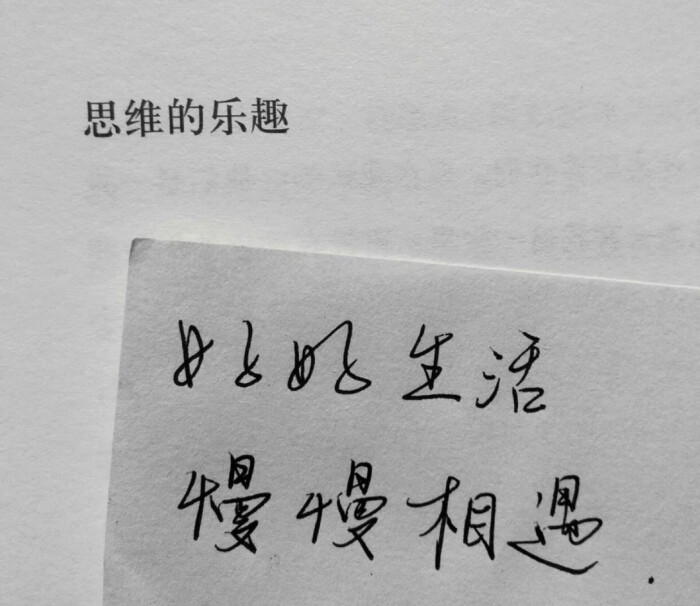 思维的乐趣
好好生活
慢慢相遇.